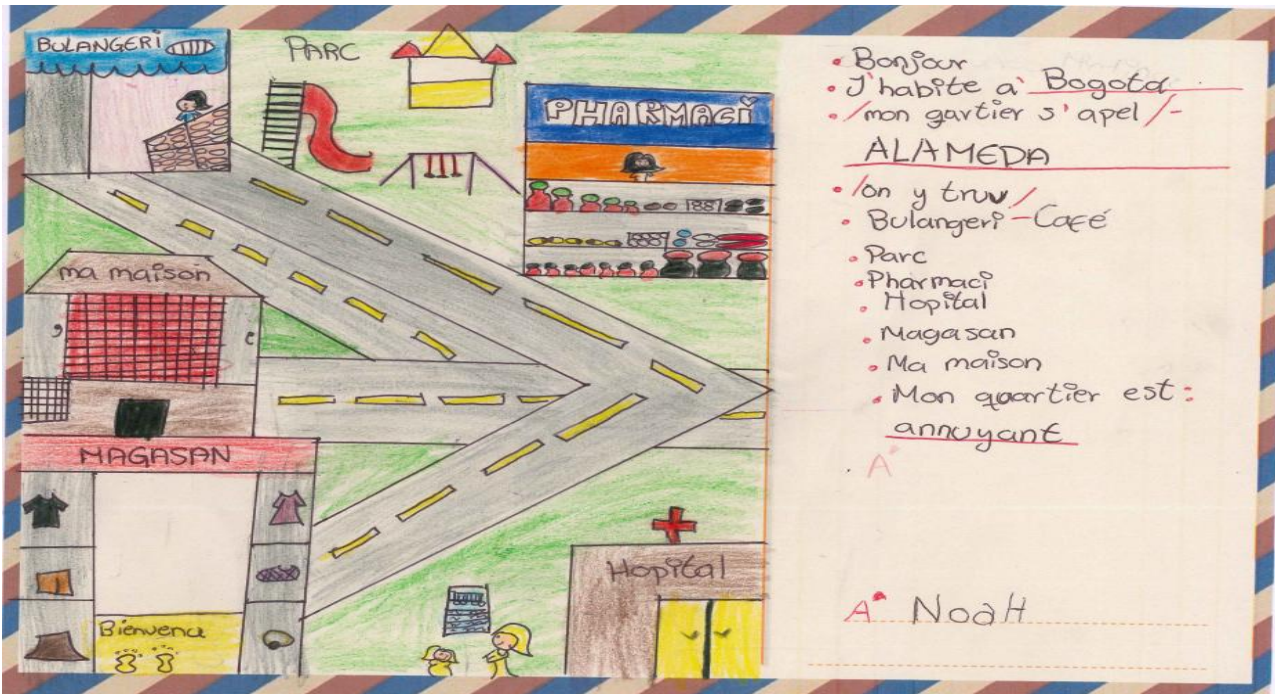 BULANGERi
PARC
PHARMACi
ma maison
MAGASAN
Bienvenu
Hopital
• Bonjour
• J'habite a' Bogota
• /mon gartier s'apel/-
ALAMEDA
• /on y truv/
• Bulangeri - Café
• Parc
• Pharmaci
• Hopital
• Magasan
• Ma maison
• Mon quartier est:
annuyant
A
A Noah